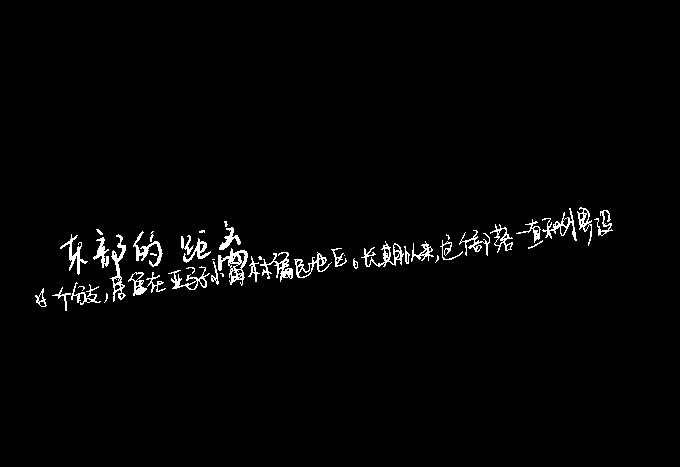 东部的距离
个分支,居住在亚马孙雨林偏远地区。长期以来,这个部落一直和外界没